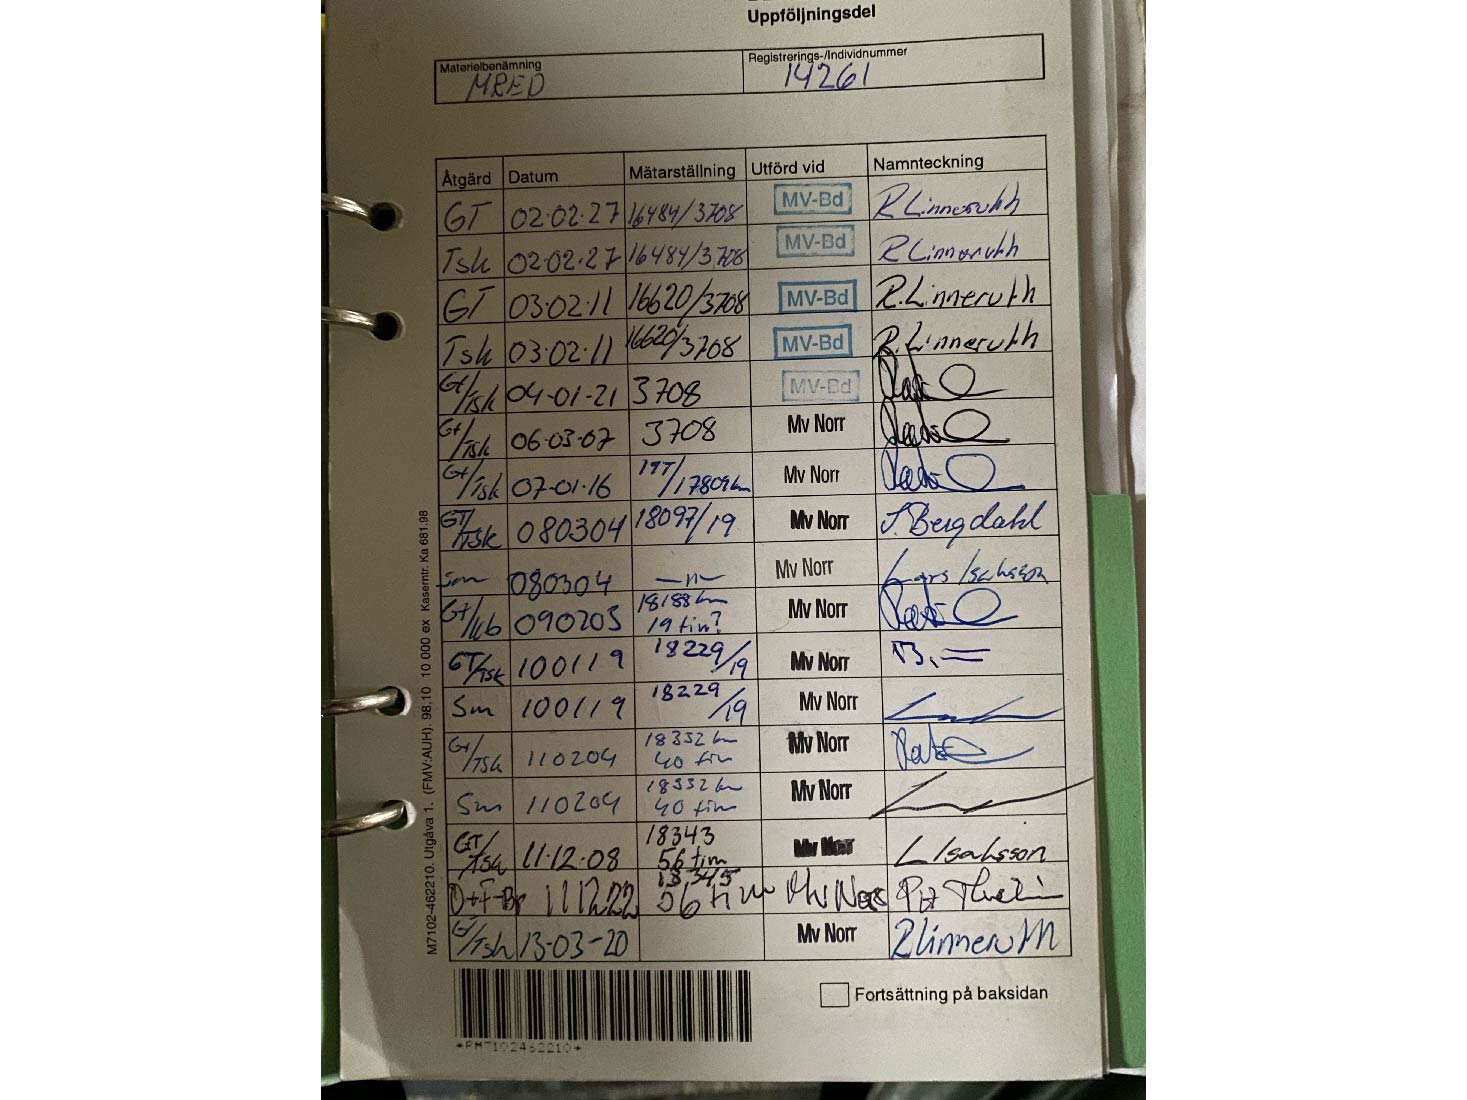 Uppföljningsdel
Materielbenämning Registrerings-/Individnummer
MRED 14261
Åtgärd Datum Mätarställning Utförd vid Namnteckning
GT 02-02-27 16484/3708 MV-Bd R Linneruth
Tsk 02-02-27 16484/3708 MV-Bd R Linneruth
GT 03-02-11 16620/3708 MV-Bd R. Linneruth
Tsk 03-02-11 16620/3708 MV-Bd R. Linneruth
Gt/Tsk 04-01-21 3708 MV-Bd
Gt/Tsk 06-03-07 3708 Mv Norr
Gt/Tsk 07-01-16 19T/17809km Mv Norr
GT/Tsk 080304 18097/19 Mv Norr J. Bergdahl
Sm 080304 —"— Mv Norr Lars Isaksson
Gt/ 090203 18188 km Mv Norr
19 tim?
GT/Tsk 100119 18229/19 Mv Norr
Sm 100119 18229/19 Mv Norr
Gt/Tsk 110204 18332 km Mv Norr
40 tim
Sm 110204 18332 km Mv Norr
40 tim
GT/Tsk 11-12-08 18343 Mv Norr L Isaksson
56 tim
D+F-Br 111222 18345 Mv Norr
56 tim
Gt/Tsk 13-03-20 Mv Norr R Linneruth
M7102-462210. Utgåva 1. (FMV:AUH). 98.10 10 000 ex Kaserntr. Ka 681.98
*FM7102462210*
Fortsättning på baksidan